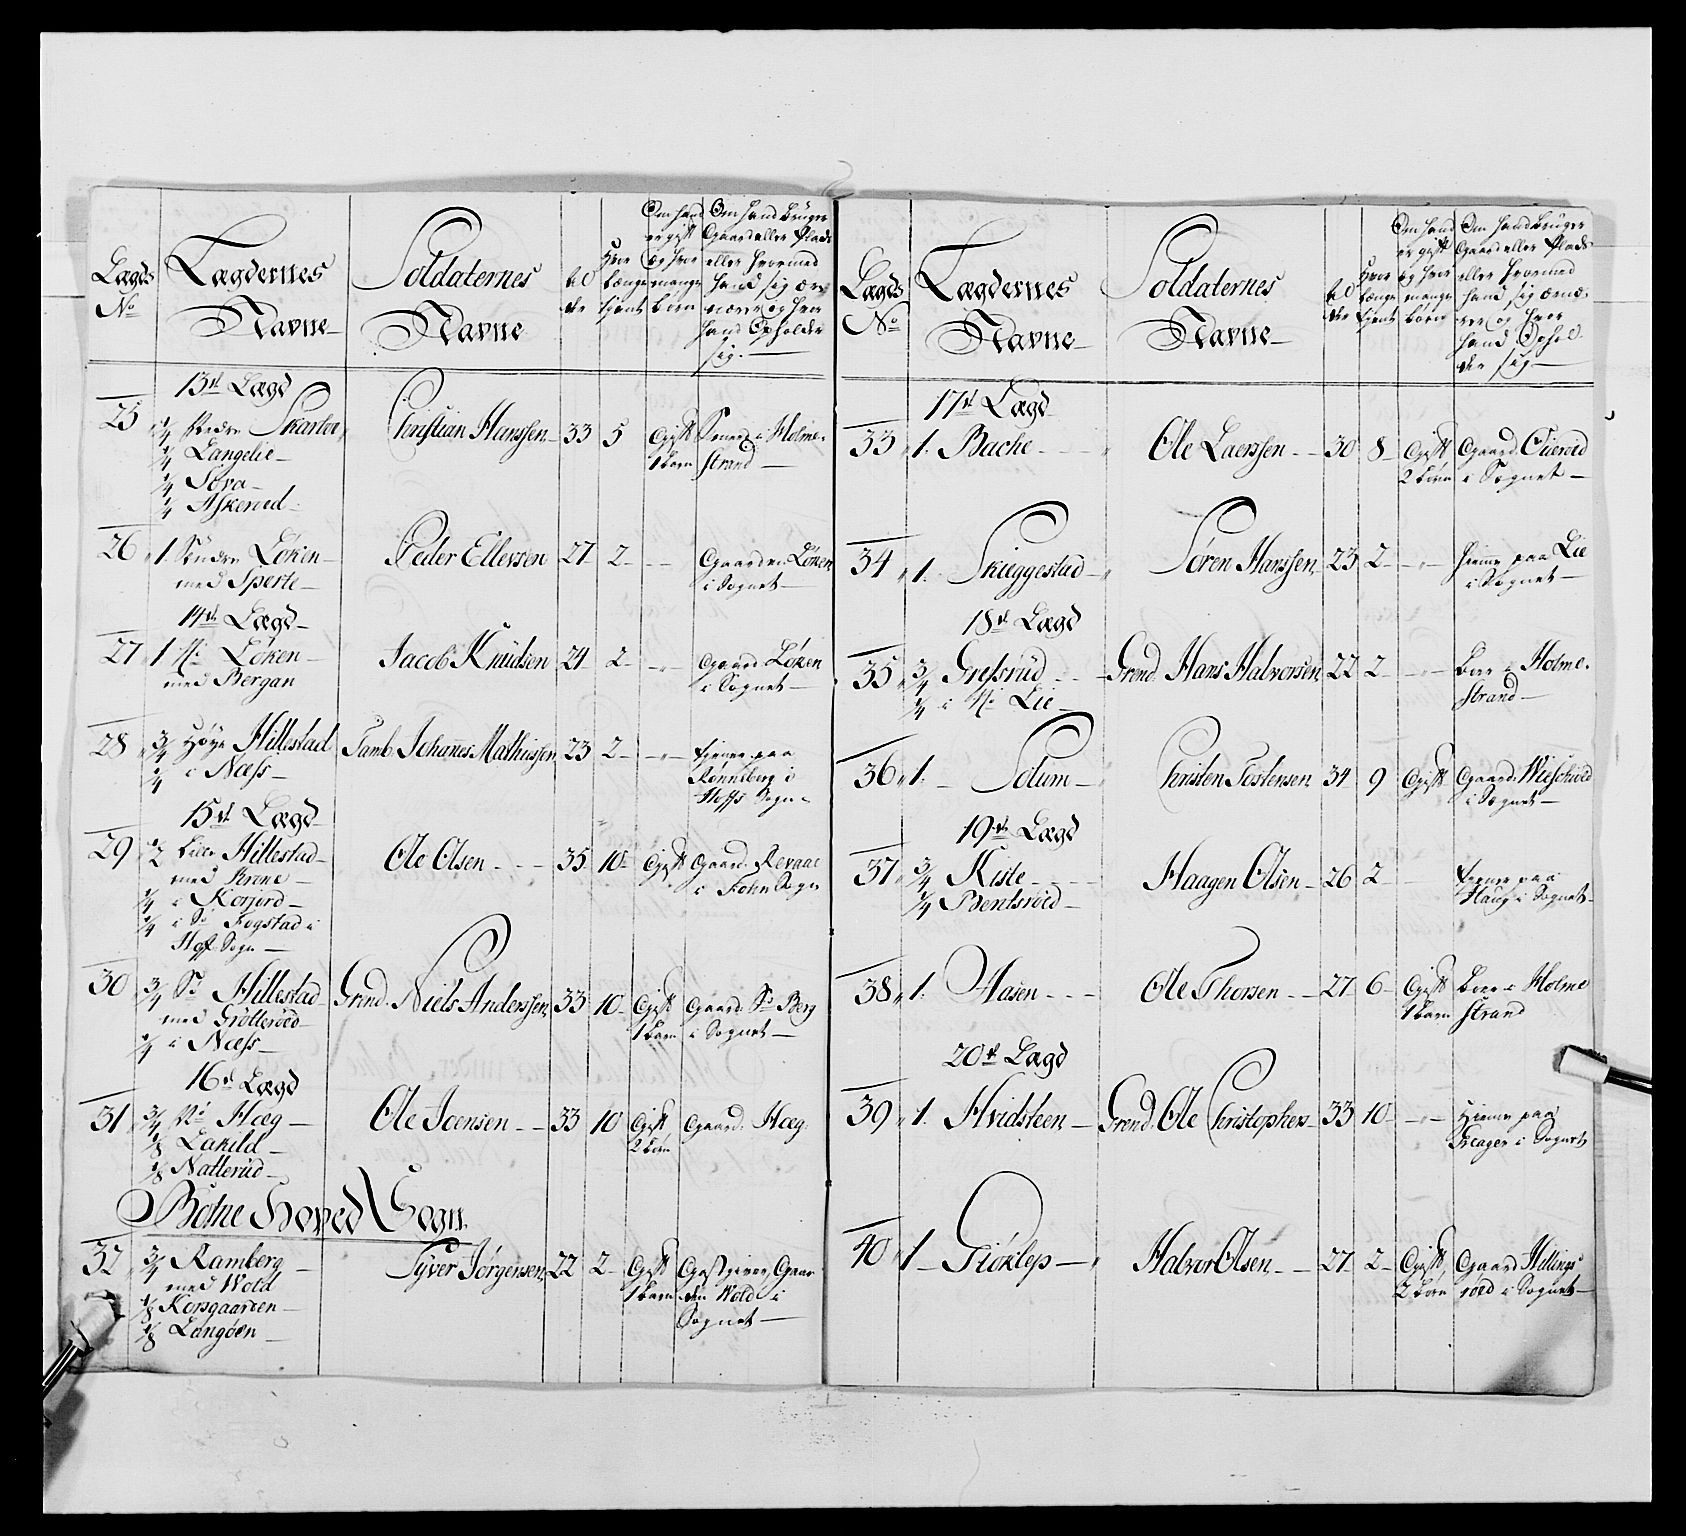 Lægds No
Lægdernes Navne
Soldaternes Navne
Hvor længe tjent
Om hand er gift og hvor mange børn
Om hand bruger Gaard eller Plads eller hvormed hand sig ærnærer og hvor hand Opholder sig
13de Lægd
25 1/4 Skartou Christian Hanssen 33 5 Gift Smed i Holme-
1/4 Langelie 1 barn strand
1/4 Sova
1/4 Askeroed
26 1. Søndre Løken Peder Ellevsen 27 2 Gaarden Løken
med Sperte i Sognet
14de Lægd
27 1 No Løken Jacob Knudsen 24 2 Gaard Løken
med Bergan i Sognet
28 3/4 Høye Hillestad Tamb. Johanes Mathiessen 23 2 tjener paa
1/4 i Næss Rønneberg i
Hoffs Sogn
15de Lægd
29 1/2 Lille Hillestad Ole Olsen 35 10 Gift Gaard Revaae
med Krene i Sogn
1/4 i Korserd
1/4 i So Fogstad i
Hof Sogn
30 3/4 So Hillestad Grend. Niels Anderssen 33 10 Gift Gaard So Berg
med Grøtterøed 1 barn i Sognet
1/4 i Næss
16de Lægd
31 3/4 No Hæg Ole Joensen 33 10 Gift Gaard Hæg
1/8 Lakild 2 børn
1/8 Natterud
Botne Hoved Sogn
32 3/4 Ramberg Syver Jørgensen 22 2 Gift Gaar
med Wold 1 barn den Wold i
1/8 Korsgaarden Sognet
1/8 Langøen
Lægds No
Lægdernes Navne
Soldaternes Navne
Hvor længe tjent
Om hand er gift og hvor mange børn
Om hand bruger Gaard eller Plads eller hvormed hand sig ærnærer og hvor hand Opholder sig
17de Lægd
33 1. Bache Ole Laerssen 30 8 Gift Gaard
2 børn i Sognet
34 1. Skieggestad Søren Hanssen 23 2 hiemme paa Lie
i Sognet
18de Lægd
35 3/4 Gressrud Grend. Hans Halvorsen 22 2 Boer i Holme-
1/4 i No Lie strand
36 1. Solum Christen Tostensen 34 9 Gift Gaard
i Sognet
19de Lægd
37 3/4 Kiste Haagen Olsen 26 2 tjener paa
1/4 Bentsrøed Haug i Sognet
38 1. Aasen Ole Thorsen 27 6 Gift Boer i Holme
1 barn strand
20de Lægd
39 1. Hvidsteen Grend. Ole Christophers 33 10 hiemme paa
Krager i Sognet
40 1 Giøklep Halvor Olsen 27 2 Gift Gaard Hillings
2 børn røed i Sognet